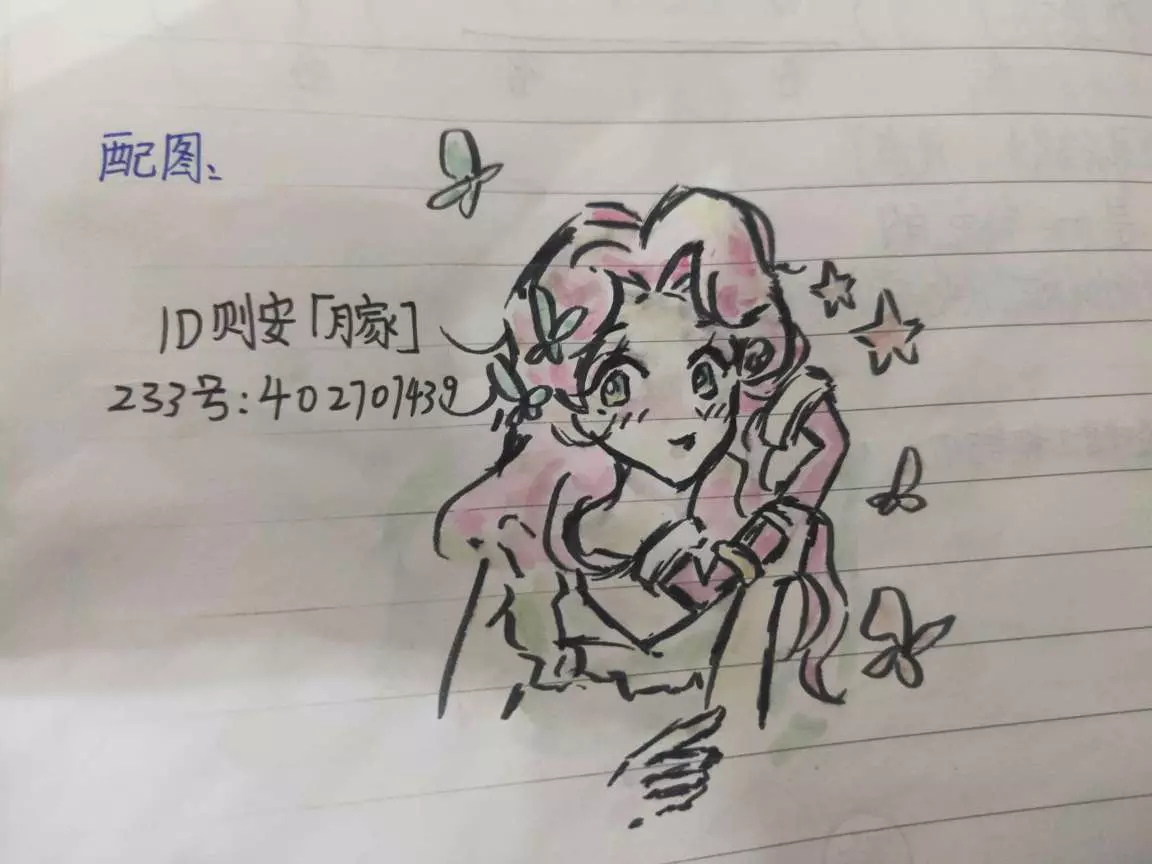 配图、
ID则安「月家」
233号:402707439